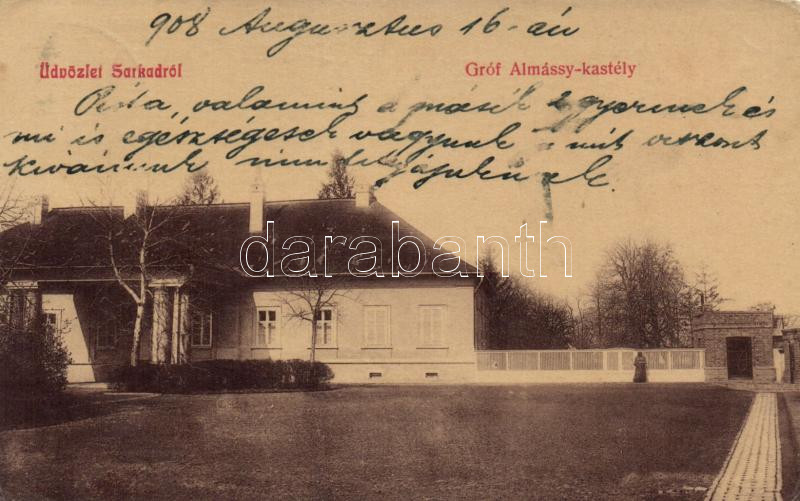 908 Augusztus 16-án
Üdvözlet Sarkadról
Gróf Almássy-kastély
Pista, valamint a másik 2 gyermek és
mi is egészségesek vagyunk a mit viszont
kívánunk
darabanth